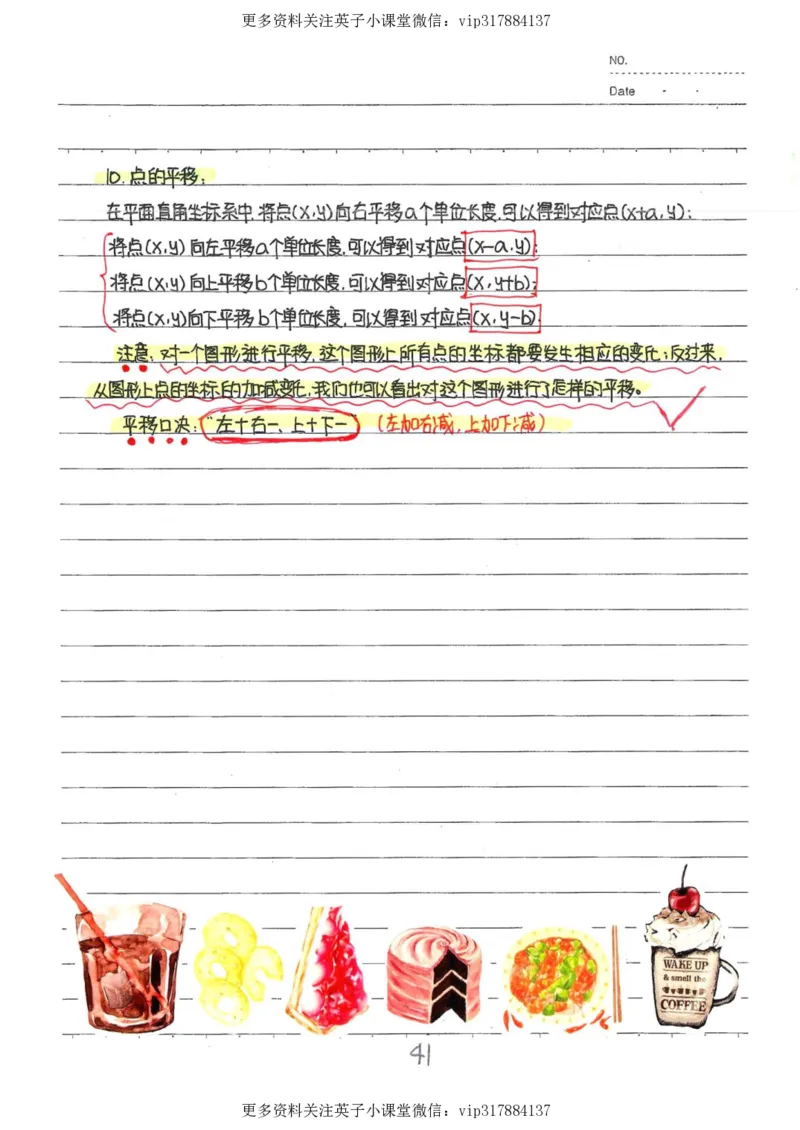 更多资料关注英子小课堂微信：vip317884137
NO.
Date - -
10.点的平移：
在平面直角坐标系中,将点(x,y)向右平移a个单位长度,可以得到对应点(x+a,y)；
将点(x,y)向左平移a个单位长度,可以得到对应点(x-a,y)；
将点(x,y)向上平移b个单位长度,可以得到对应点(x,y+b)；
将点(x,y)向下平移b个单位长度,可以得到对应点(x,y-b).
注意：对一个图形进行平移,这个图形上所有点的坐标都要发生相应的变化；反过来,
从图形上点的坐标的加减变化,我们也可以看出对这个图形进行了怎样的平移。
平移口决："左+右-、上+下-"（左加右减,上加下减）
WAKE UP
& smell the
COFFEE
41
更多资料关注英子小课堂微信：vip317884137